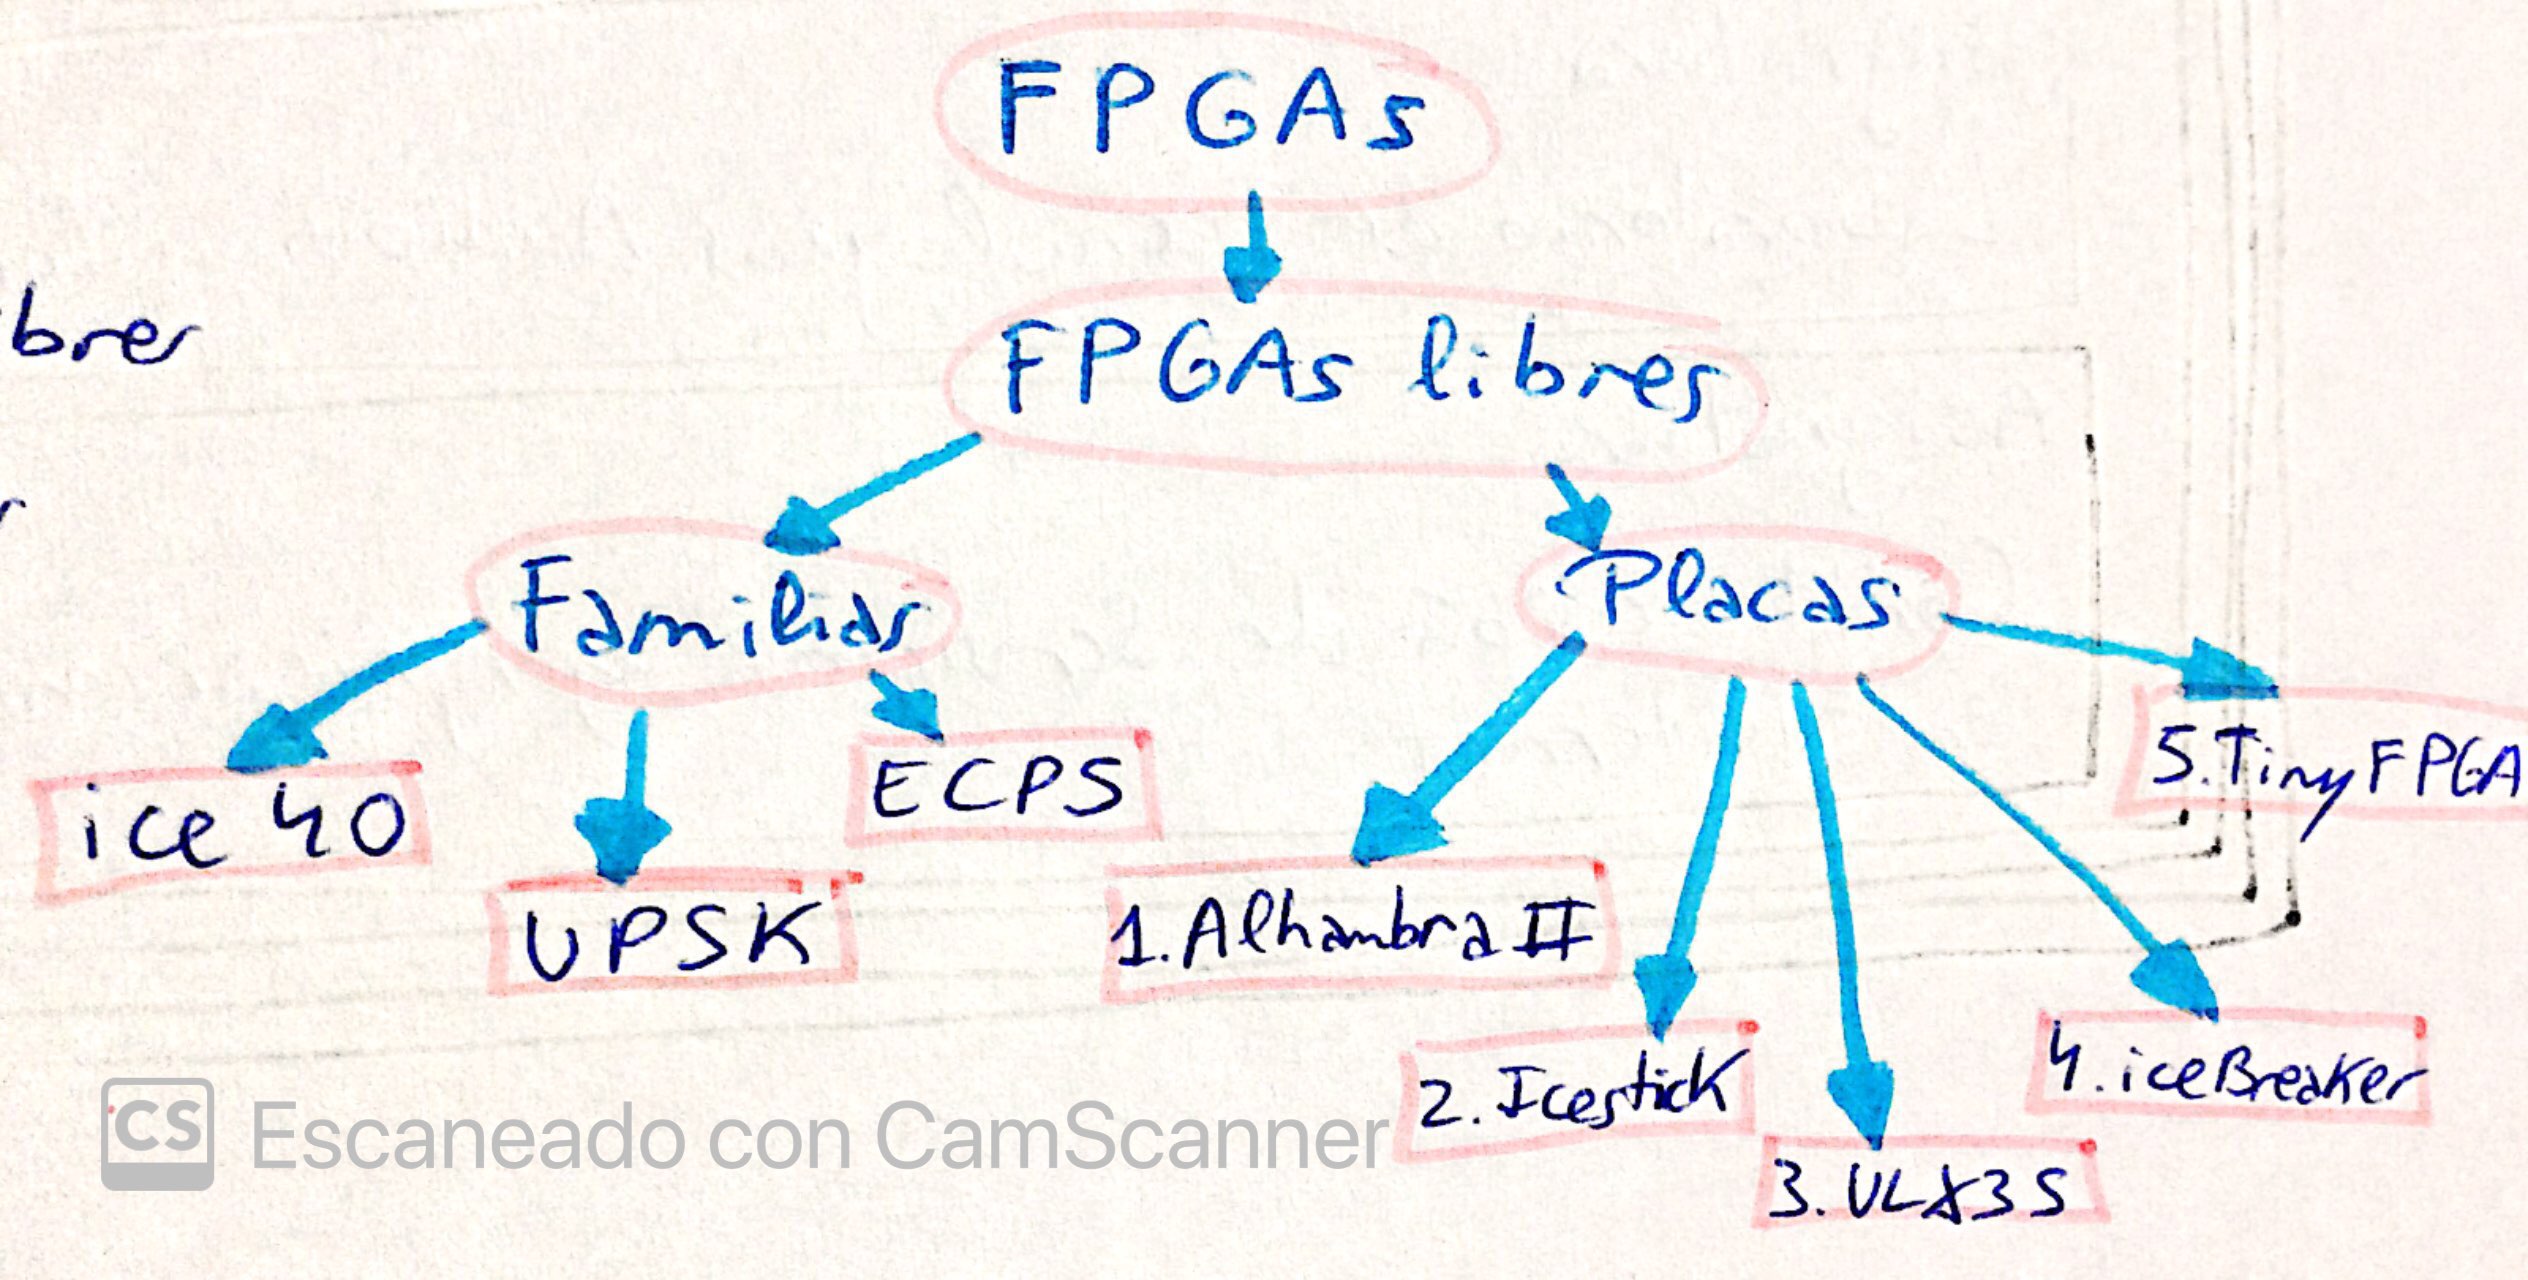 FPGAs
brer
FPGAs libres
Familias
Placas
ice 40
UP5K
ECP5
1. Alhambra II
2. Icestick
3. ULX3S
4. iceBreaker
5. TinyFPGA
CS Escaneado con CamScanner